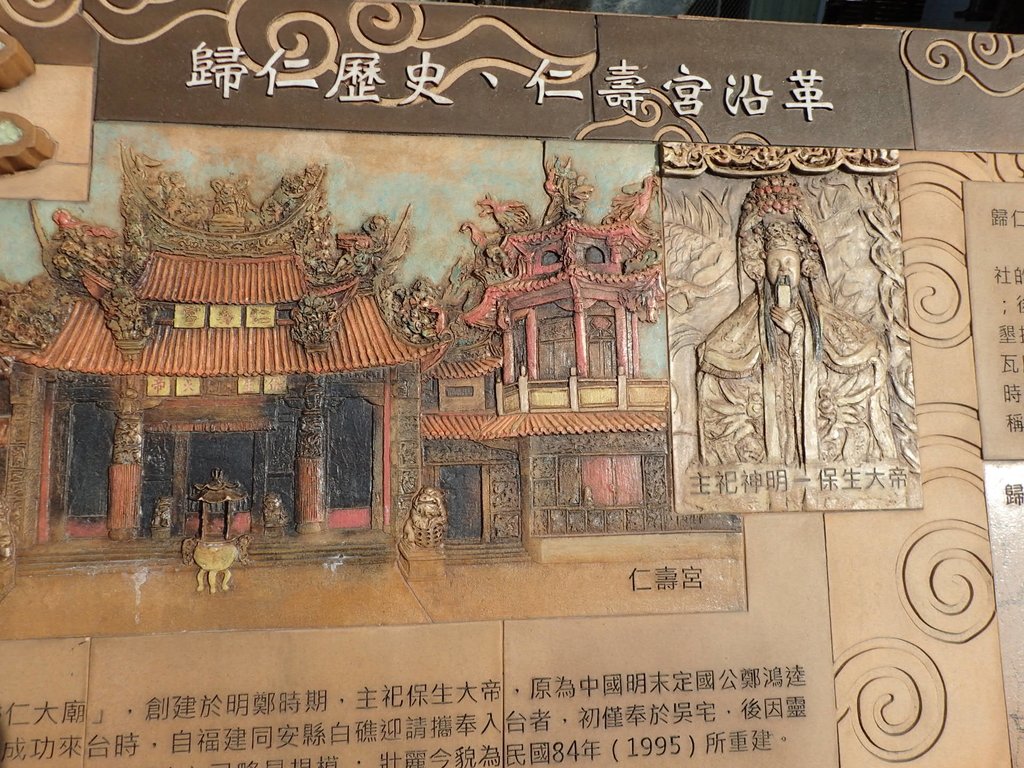 歸仁歷史、仁壽宮沿革
主祀神明－保生大帝
仁壽宮
仁大廟」，創建於明鄭時期，主祀保生大帝，原為中國明末定國公鄭鴻逵
成功來台時，自福建同安縣白礁迎請攜奉入台者，初僅奉於吳宅，後因靈
壯麗今貌為民國84年（1995）所重建。
歸仁
社的
墾
瓦
時
稱
歸